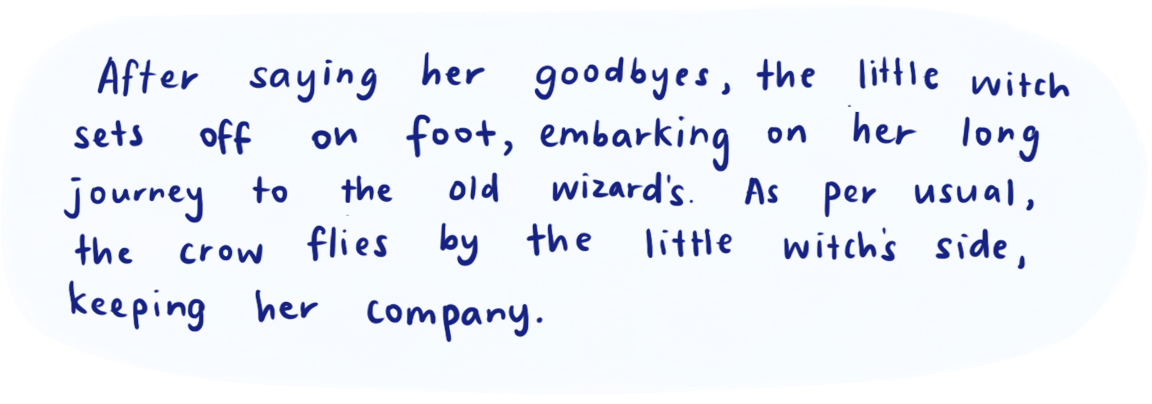 After saying her goodbyes, the little witch
sets off on foot, embarking on her long
journey to the old wizard's. As per usual,
the crow flies by the little witch's side,
keeping her company.